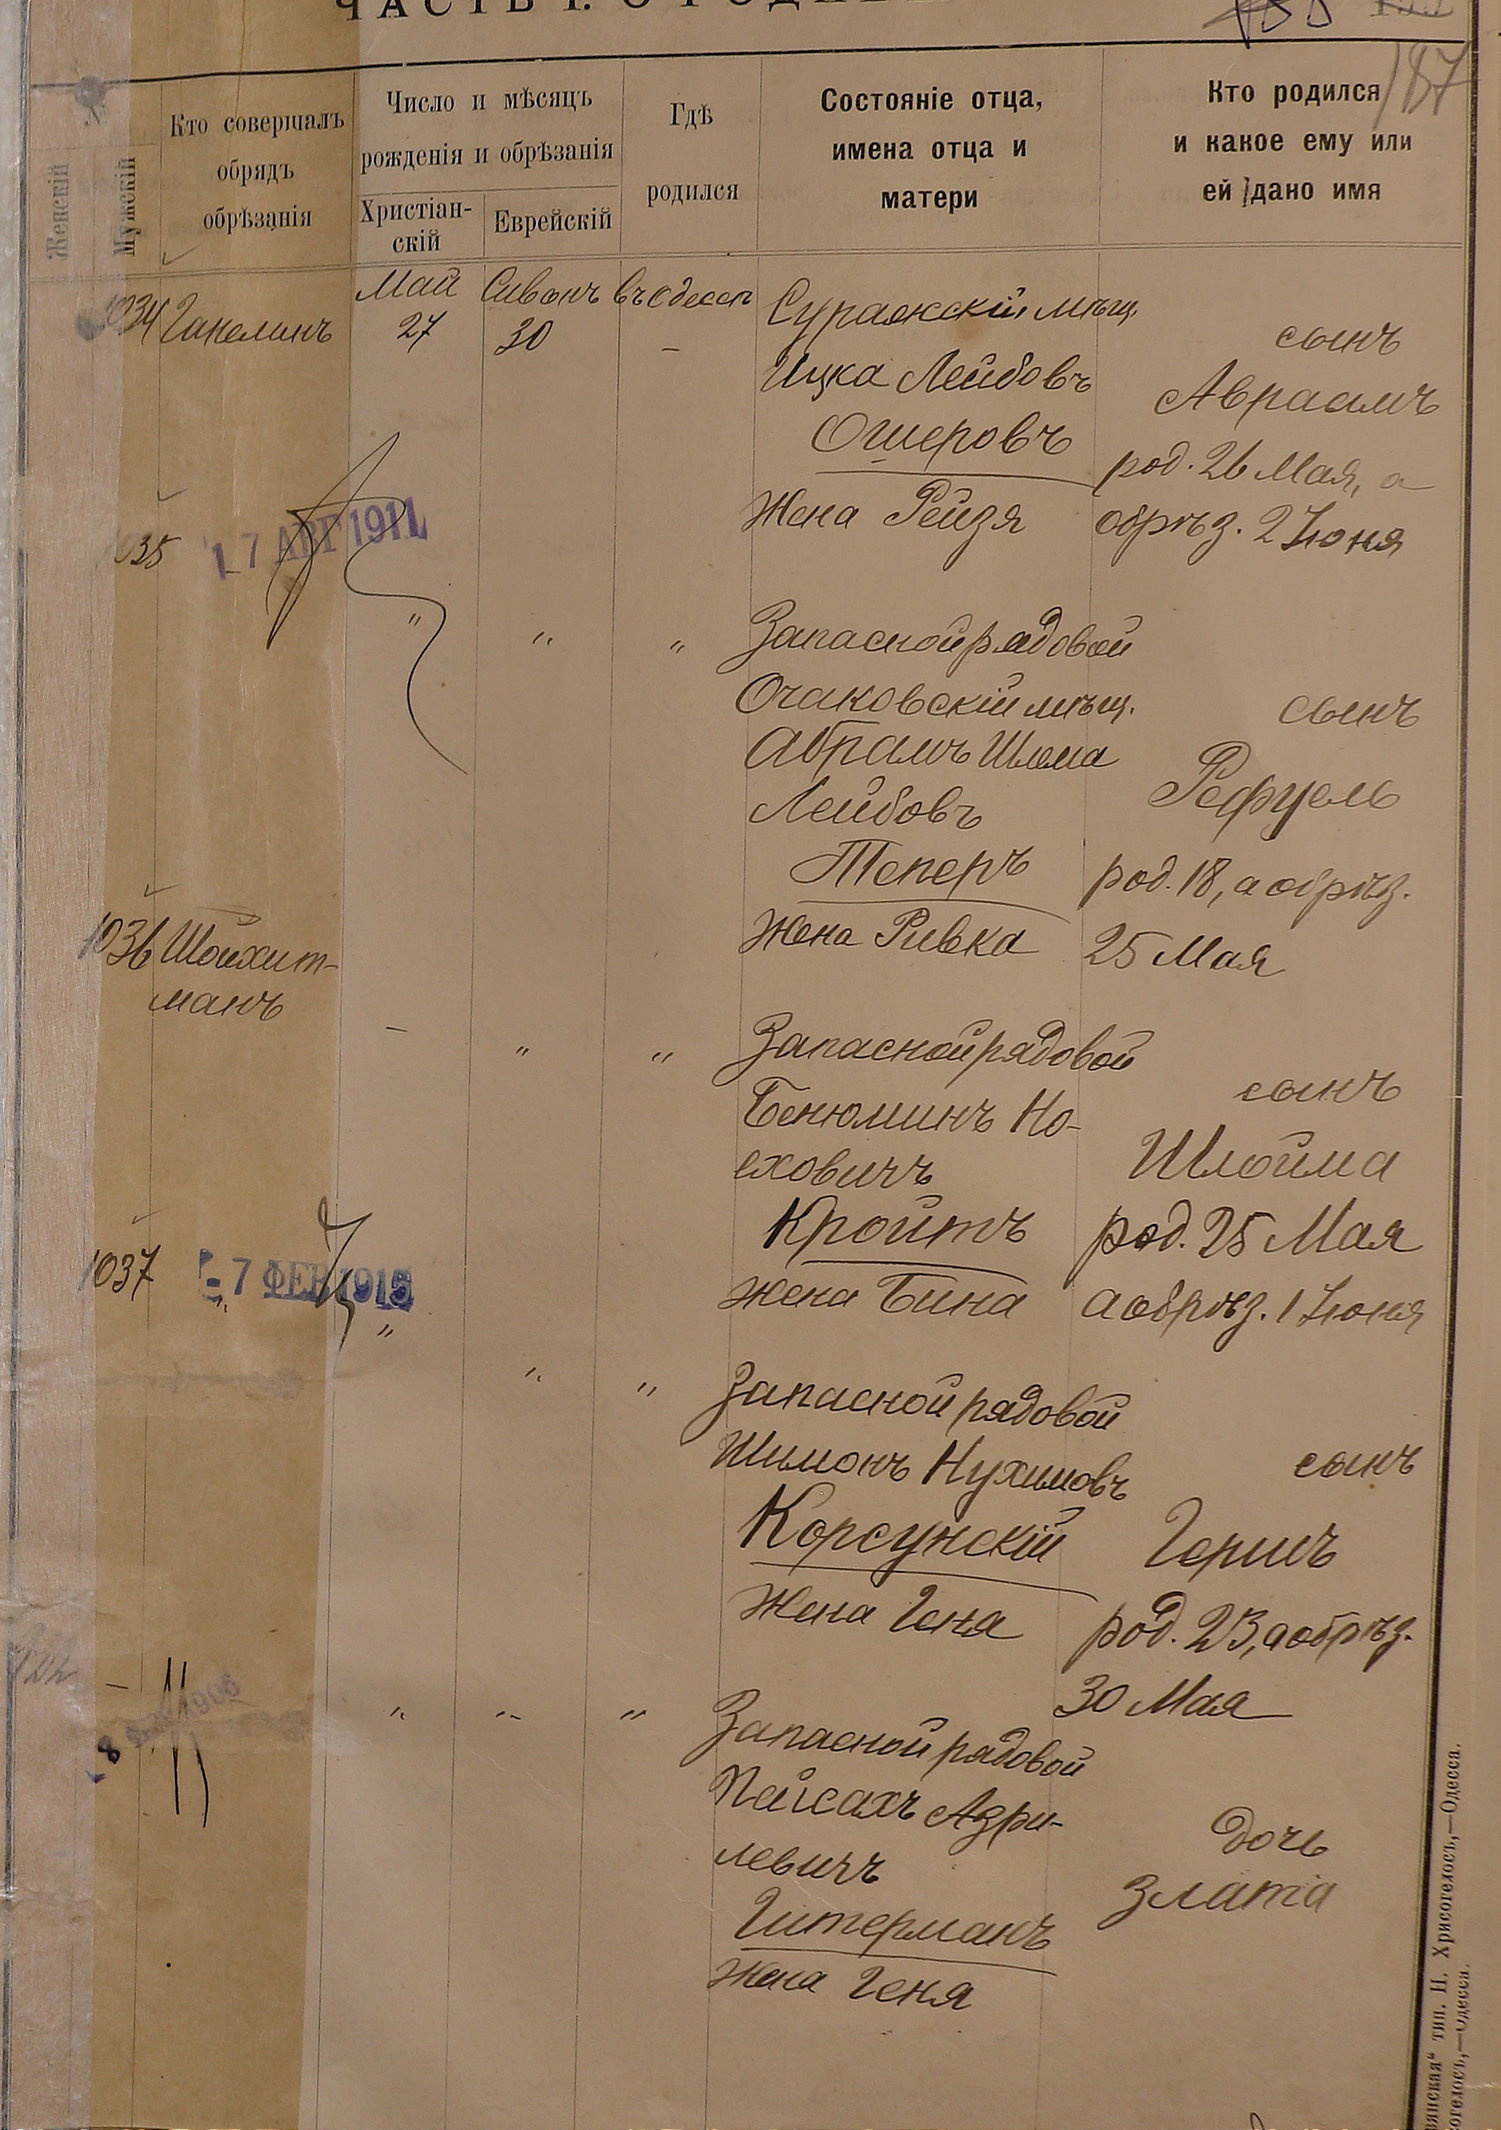 ЧАСТЬ I. О РОДИВ
187
Женскій
Мужскій
Кто совершалъ
обрядъ
обрѣзанія
Число и мѣсяцъ
рожденія и обрѣзанія
Христіан-
скій
Еврейскій
Гдѣ
родился
Состояніе отца,
имена отца и
матери
Кто родился
и какое ему или
ей дано имя
1034 Ганелинъ
Май
27
Сивонъ
30
въ Одессѣ
–
Суражскій мѣщ.
Ицка Лейбовъ
Ошеровъ
Жена Рейзя
сынъ
Авраамъ
род. 26 Мая, а
обрѣз. 2 Іюня
1035
17 АВГ 1911
"
"
"
Запасной рядовой
Очаковскій мѣщ.
Абрамъ Шлема
Лейбовъ
Теперъ
Жена Ривка
сынъ
Рефуель
род. 18, а обрѣз.
25 Мая
1036 Шойхит-
манъ
–
"
"
Запасной рядовой
Бенюминъ Но-
еховичъ
Кройтъ
Жена Бина
сынъ
Шлойма
род. 25 Мая
а обрѣз. 1 Іюня
1037
-7 ФЕВ 1915
"
"
"
"
Запасной рядовой
Шимонъ Нухимовъ
Корсунскій
Жена Геня
сынъ
Гершъ
род. 23, а обрѣз.
30 Мая
–
"
"
"
Запасной рядовой
Пейсахъ Азри-
левичъ
Гитерманъ
Жена Геня
дочь
Злата
вянская" тип. Н. Хрисогелосъ,—Одесса.
огелосъ,—Одесса.